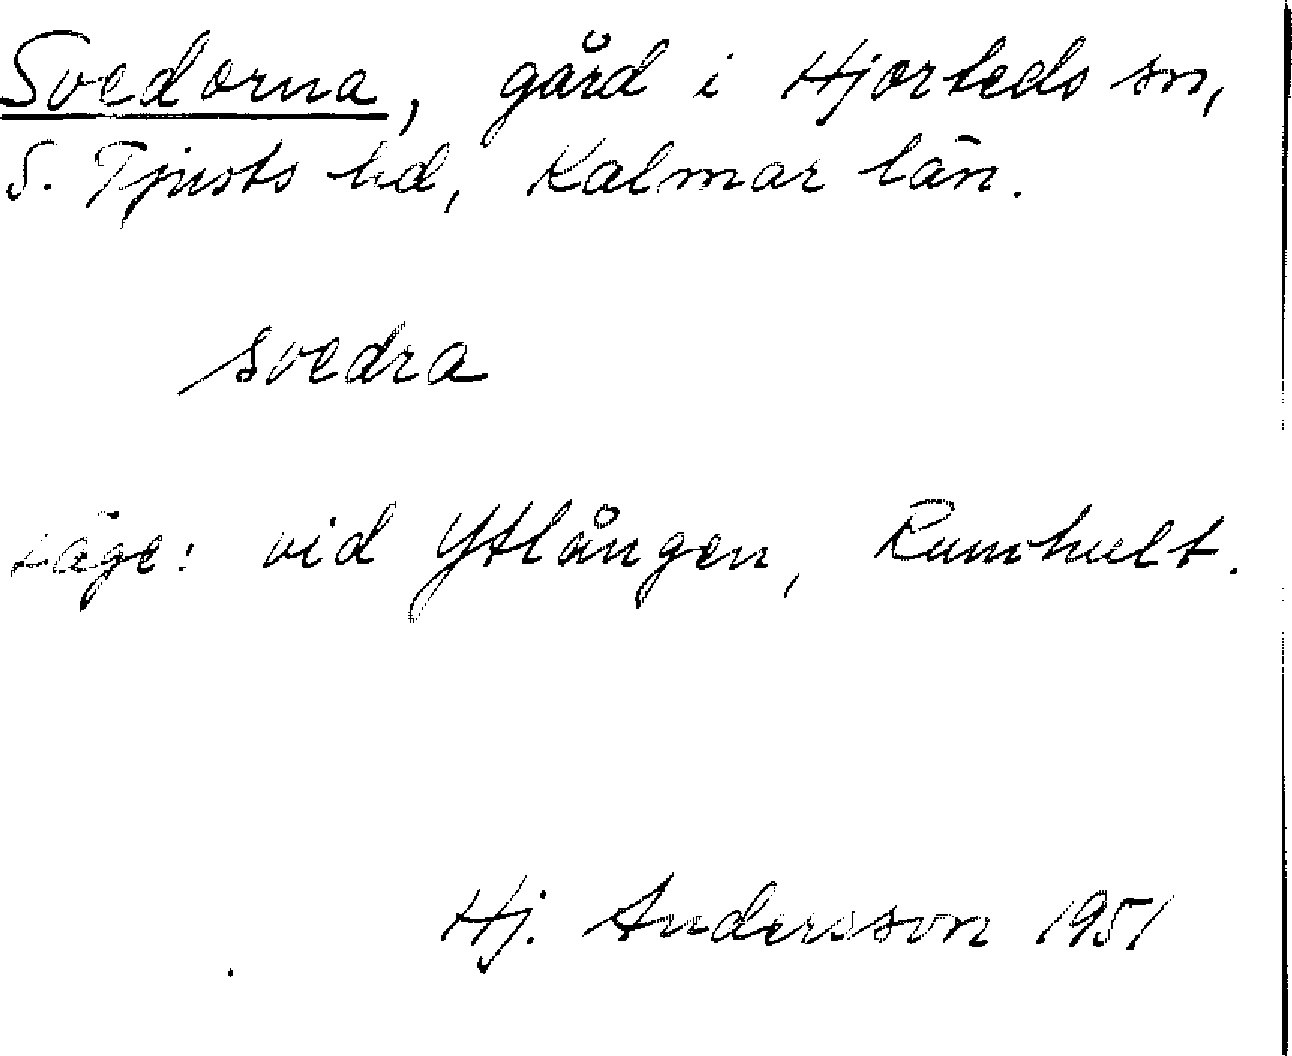 Svedorna, gård i Hjorteds sn,
S. Tjusts hd, Kalmar län.
svedra
Läge: vid Ytlången, Rumhult.
Hj. Andersson 1951